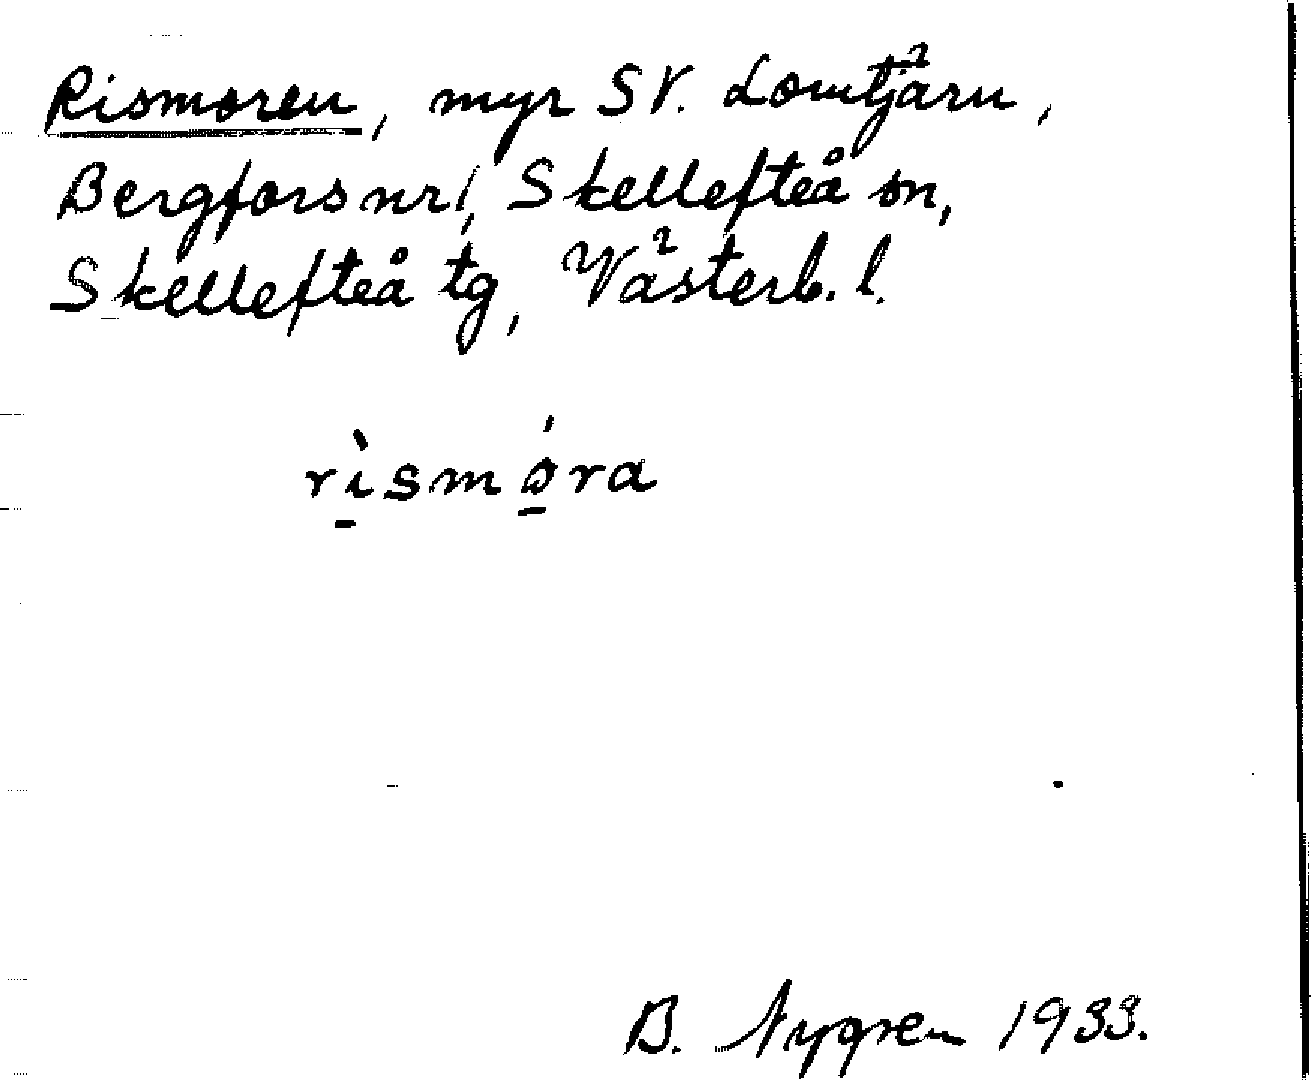 Rismoren, myr SV. Lomtjärn,
Bergfors nr 1, Skellefteå sn,
Skellefteå tg, Västerb. l.
rìsmǿra
B. Nygren 1933.